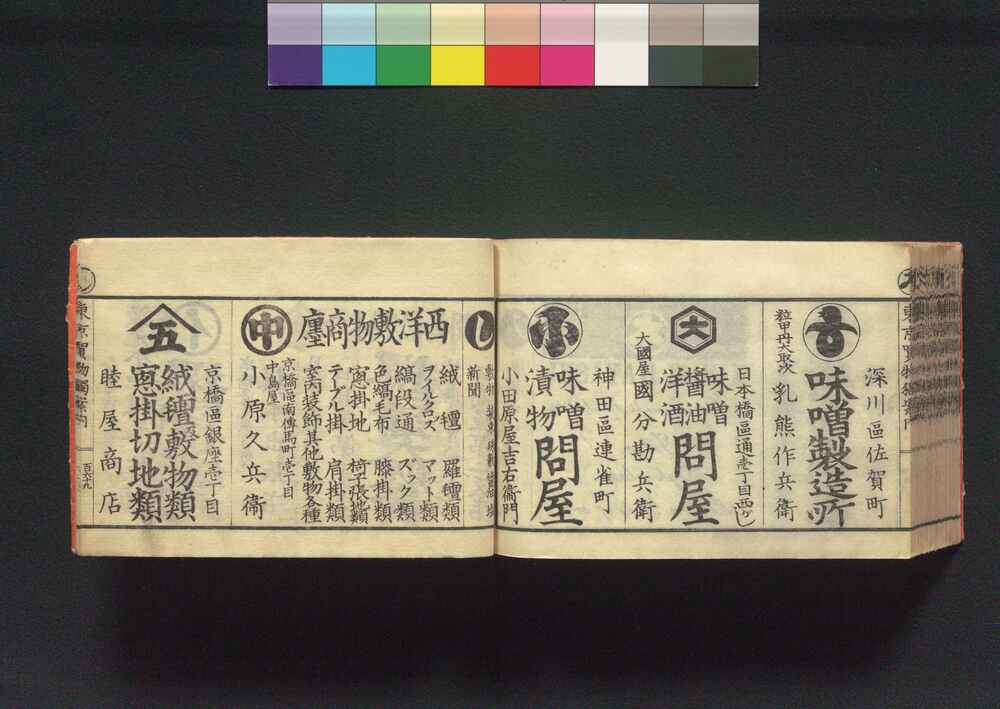 深川區佐賀町
味噌製造所
乳熊作兵衛
日本橋區通壱丁目西ゟ
大
味噌
醬油
洋酒
問屋
大國屋
國分勘兵衛
神田區連雀町
小
味噌
漬物
問屋
小田原屋吉右衞門
し
新聞
西洋敷物商廛
絨氊 羅氊類
ヲイルクロス マット類
縞段通 ズック類
色縞毛布 膝掛類
窓掛地 椅子張地類
テーブル掛 肩掛類
室内装飾其他敷物各種
中
京橋區南傳馬町壱丁目
中島屋
小原久兵衛
京橋區銀座壱丁目
五
絨氊敷物類
窓掛切地類
睦屋商店
東京買物獨案内
百六十九